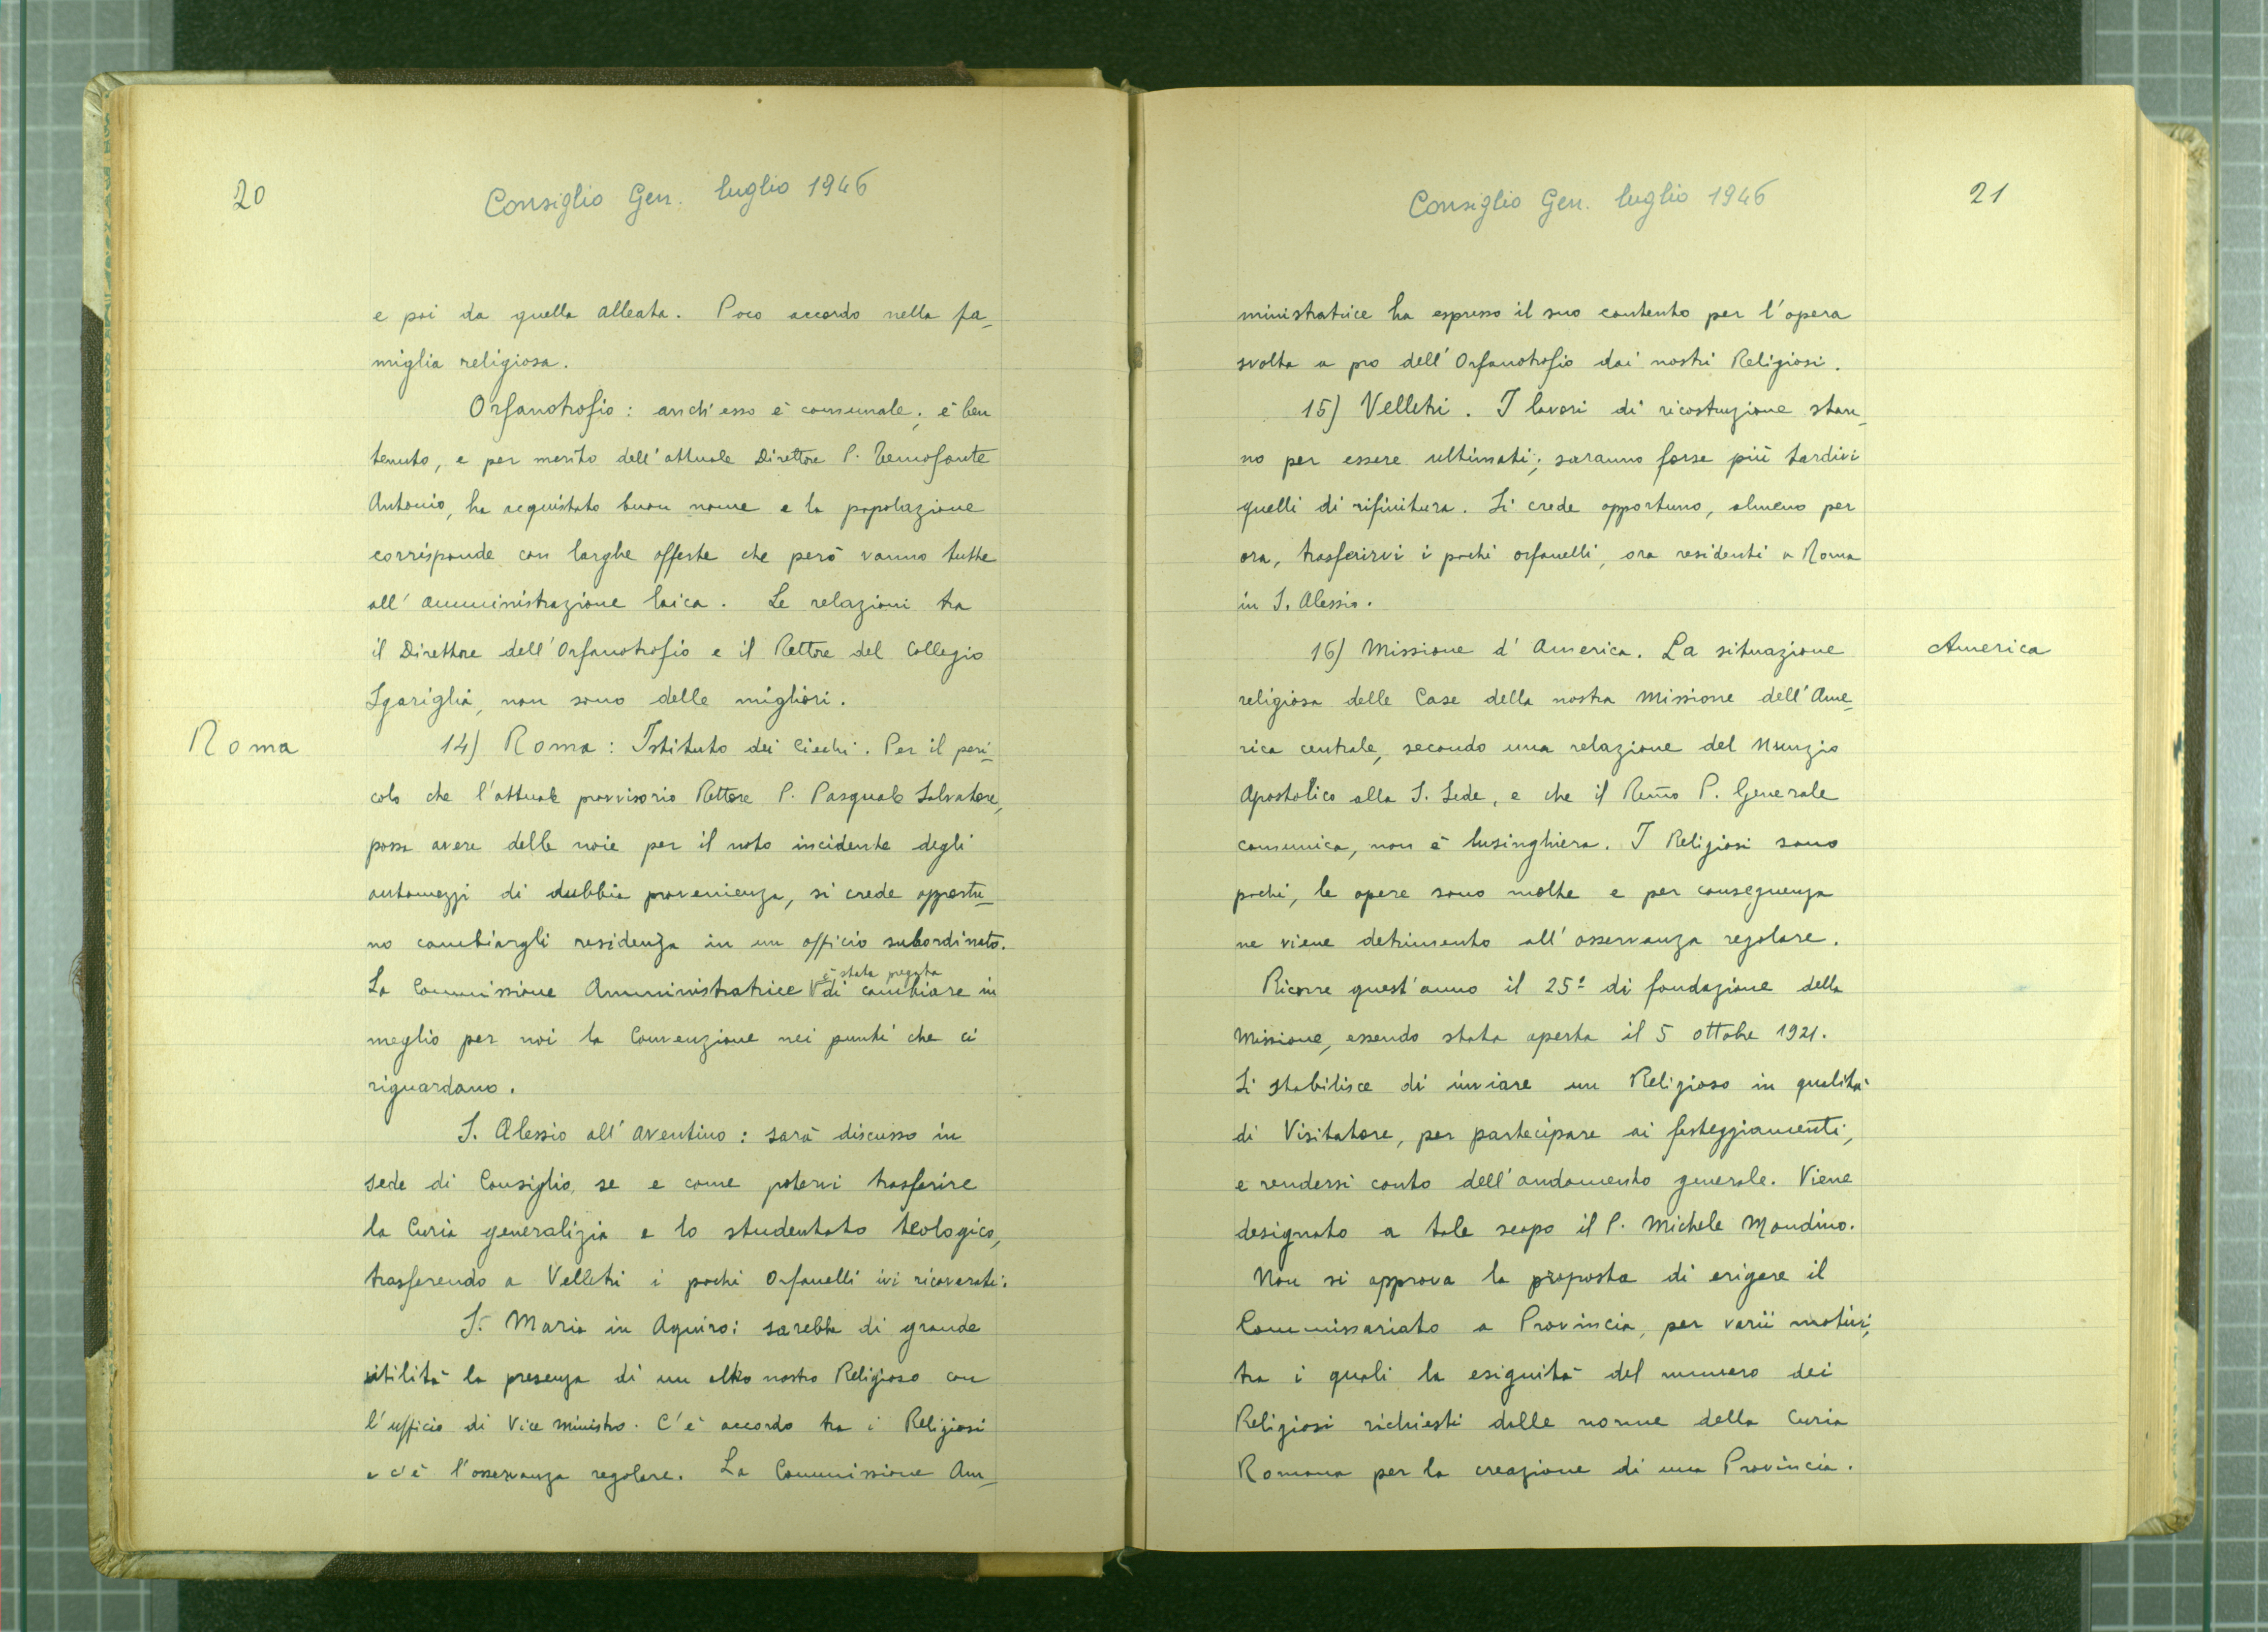 20
Consiglio Gen. luglio 1946
e poi da quella alleata. Poco accordo nella fa-
miglia religiosa.
Orfanotrofio: anch'esso è comunale; è ben
tenuto, e per merito dell'attuale Direttore P. Temofonte
Antonio, ha acquistato buon nome e la popolazione
corrisponde con larghe offerte che però vanno tutte
all'amministrazione laica. Le relazioni tra
il Direttore dell'Orfanotrofio e il Rettore del Collegio
Sgariglia, non sono delle migliori.
Roma
14) Roma: Istituto dei Ciechi. Per il peri-
colo che l'attuale provvisorio Rettore P. Pasquale Salvatore,
possa avere delle noie per il noto incidente degli
automezzi di dubbia provenienza, si crede opportu-
no cambiargli residenza in un officio subordinato.
La Commissione Amministratrice è stata pregata di cambiare in
meglio per noi la Convenzione nei punti che ci
riguardano.
S. Alessio all'Aventino: sarà discusso in
sede di Consiglio, se e come potervi trasferire
la Curia generalizia e lo studentato teologico,
trasferendo a Velletri i pochi Orfanelli ivi ricoverati.
S. Maria in Aquiro: sarebbe di grande
utilità la presenza di un altro nostro Religioso con
l'ufficio di Vice ministro. C'è accordo tra i Religiosi
e c'è l'osservanza regolare. La Commissione Am-
Consiglio Gen. luglio 1946
21
ministratrice ha espresso il suo contento per l'opera
svolta a pro dell'Orfanotrofio dai nostri Religiosi.
15) Velletri. I lavori di ricostruzione stan-
no per essere ultimati; saranno forse più tardivi
quelli di rifinitura. Si crede opportuno, almeno per
ora, trasferirvi i pochi orfanelli, ora residenti a Roma
in S. Alessio.
16) Missione d'America. La situazione
America
religiosa delle Case della nostra Missione dell'Ame-
rica centrale, secondo una relazione del Nunzio
Apostolico alla S. Sede, e che il Rem̃o P. Generale
comunica, non è lusinghiera. I Religiosi sono
pochi, le opere sono molte e per conseguenza
ne viene detrimento all'osservanza regolare.
Ricorre quest'anno il 25º di fondazione della
Missione, essendo stata aperta il 5 ottobre 1921.
Si stabilisce di inviare un Religioso in qualità
di Visitatore, per partecipare ai festeggiamenti,
e rendersi conto dell'andamento generale. Viene
designato a tale scopo il P. Michele Mondino.
Non si approva la proposta di erigere il
Commissariato a Provincia, per varii motivi,
tra i quali la esiguità del numero dei
Religiosi richiesti dalle norme della Curia
Romana per la creazione di una Provincia.